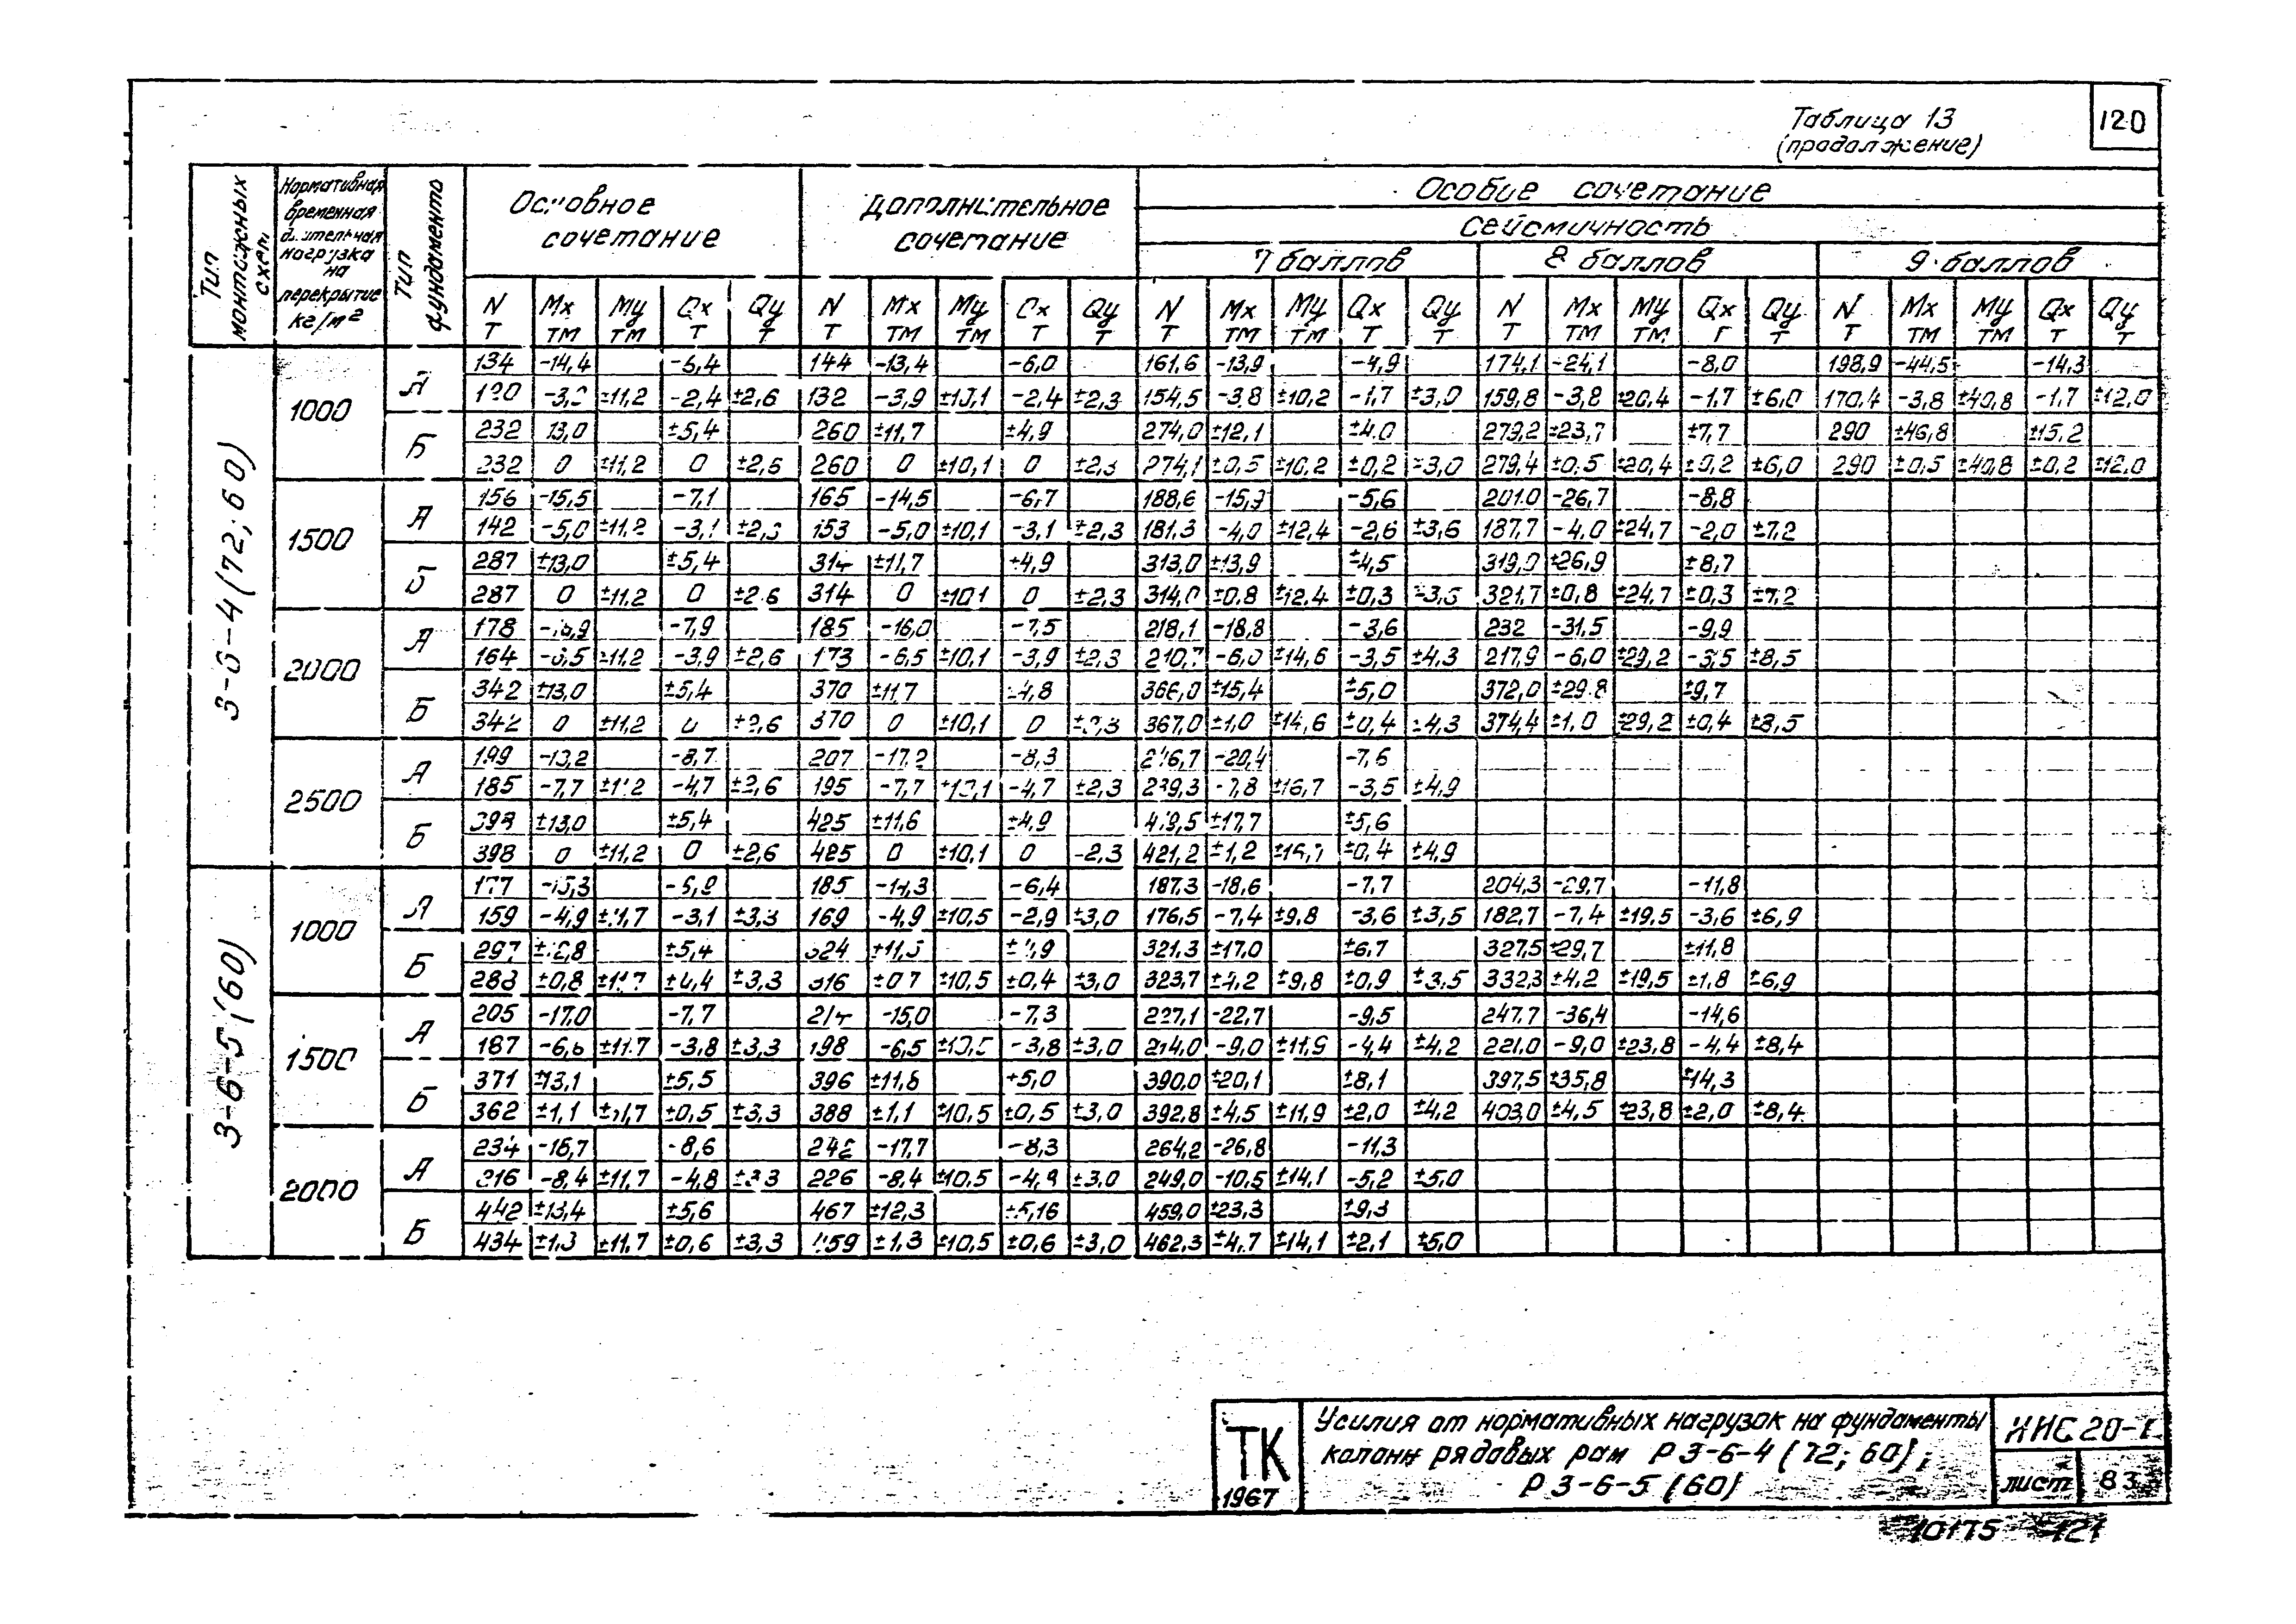 120
Таблица 13
(продолжение)
Тип монтажных схем
Нормативная временная длительная нагрузка на перекрытие кг/м²
Тип фундамента
Основное сочетание
Дополнительное сочетание
Особое сочетание
Сейсмичность
7 баллов 8 баллов 9 баллов
N Mx My Qx Qy N Mx My Qx Qy N Mx My Qx Qy N Mx My Qx Qy N Mx My Qx Qy
Т ТМ ТМ Т Т Т ТМ ТМ Т Т Т ТМ ТМ Т Т Т ТМ ТМ Т Т Т ТМ ТМ Т Т
3-6-4 (72; 60)
1000
А
134 -14,4 -6,4 144 -13,4 -6,0 161,6 -13,9 -4,9 174,1 -24,1 -8,0 198,9 -44,5 -14,3
±11,2 -2,4 ±2,6 132 -3,9 ±10,1 -2,4 ±2,3 154,5 -3,8 ±10,2 -1,7 ±3,0 159,8 -3,8 ±20,4 -1,7 ±6,0 170,4 -3,8 ±40,8 -1,7 ±12,0
Б
232 13,0 ±5,4 260 ±11,7 ±4,9 274,0 ±12,1 ±4,0 279,2 ±23,7 ±7,7 290 ±46,8 ±15,2
232 0 ±11,2 0 ±2,6 260 0 ±10,1 0 ±2,3 274,1 ±0,5 ±10,2 ±0,2 ±3,0 279,4 ±0,5 ±20,4 ±0,2 ±6,0 290 ±0,5 ±40,8 ±0,2 ±12,0
1500
А
156 -15,5 -7,1 165 -14,5 -6,7 188,6 -5,6 201,0 -26,7 -8,8
142 -5,0 ±11,2 -3,1 153 -5,0 ±10,1 -3,1 ±2,3 181,3 -4,0 ±12,4 -2,6 ±3,6 187,7 -4,0 ±24,7 -2,0 ±7,2
Б
287 ±13,0 ±5,4 314 ±11,7 ±4,9 313,0 ±13,9 ±4,5 319,0 ±26,9 ±8,7
287 0 ±11,2 0 ±2,6 314 0 ±10,1 0 ±2,3 314,0 ±0,8 ±12,4 ±0,3 321,7 ±0,8 ±24,7 ±0,3 ±7,2
2000
А
178 -7,9 185 -16,0 -7,5 218,1 -18,8 -3,6 232 -31,5 -9,9
164 -6,5 ±11,2 -3,9 ±2,6 173 -6,5 ±10,1 -3,9 ±2,3 -6,0 ±14,6 -3,5 ±4,3 217,9 -6,0 ±29,2 -3,5 ±8,5
Б
342 ±13,0 ±5,4 370 ±11,7 ±4,8 366,0 ±15,4 ±5,0 372,0 ±29,8 ±9,7
342 0 ±11,2 0 ±2,6 370 0 ±10,1 0 ±2,3 367,0 ±1,0 ±14,6 ±0,4 ±4,3 374,4 ±1,0 ±29,2 ±0,4 ±8,5
2500
А
199 -8,7 207 -17,2 -8,3 -20,4 -7,6
185 -7,7 ±11,2 -4,7 ±2,6 195 -7,7 ±10,1 -4,7 ±2,3 239,3 -7,8 ±16,7 -3,5 ±4,9
Б
398 ±13,0 ±5,4 425 ±11,6 ±4,9 419,5 ±17,7 ±5,6
398 0 ±11,2 0 ±2,6 425 0 ±10,1 0 -2,3 421,2 ±1,2 ±16,7 ±0,4 ±4,9
3-6-5 (60)
1000
А
177 -15,3 185 -14,3 -6,4 187,3 -18,6 -7,7 204,3 -29,7 -11,8
159 -4,9 ±11,7 -3,1 ±3,3 169 -4,9 ±10,5 -2,9 ±3,0 176,5 -7,4 ±9,8 -3,6 ±3,5 182,7 -7,4 ±19,5 -3,6 ±6,9
Б
297 ±5,4 324 ±4,9 321,3 ±17,0 ±6,7 327,5 ±29,7 ±11,8
288 ±0,8 ±11,7 ±0,4 ±3,3 316 ±0,7 ±10,5 ±0,4 ±3,0 323,7 ±4,2 ±9,8 ±0,9 ±3,5 332,3 ±4,2 ±19,5 ±1,8 ±6,9
1500
А
205 -17,0 -7,7 -15,0 -7,3 227,1 -22,7 -9,5 247,7 -36,4 -14,6
187 -6,6 ±11,7 -3,8 ±3,3 198 -6,5 ±10,5 -3,8 ±3,0 214,0 -9,0 ±11,9 -4,4 ±4,2 221,0 -9,0 ±23,8 -4,4 ±8,4
Б
371 ±13,1 ±5,5 396 ±11,8 ±5,0 390,0 ±20,1 ±8,1 397,5 ±35,8 ±14,3
362 ±1,1 ±11,7 ±0,5 ±3,3 388 ±1,1 ±10,5 ±0,5 ±3,0 392,8 ±4,5 ±11,9 ±2,0 ±4,2 403,0 ±4,5 ±23,8 ±2,0 ±8,4
2000
А
234 -18,7 -8,6 -17,7 -8,3 264,2 -26,8 -11,3
216 -8,4 ±11,7 -4,8 ±3,3 226 -8,4 ±10,5 -4,8 ±3,0 249,0 -10,5 ±14,1 -5,2 ±5,0
Б
442 ±13,4 ±5,6 467 ±12,3 ±5,16 459,0 ±23,3 ±9,3
434 ±1,3 ±11,7 ±0,6 ±3,3 459 ±1,3 ±10,5 ±0,6 ±3,0 462,3 ±4,7 ±14,1 ±2,1 ±5,0
ТК
1967
Усилия от нормативных нагрузок на фундаменты
колонн рядовых рам Р 3-6-4 (72; 60);
Р 3-6-5 (60)
ИИС 20-1
лист 83
10175 121